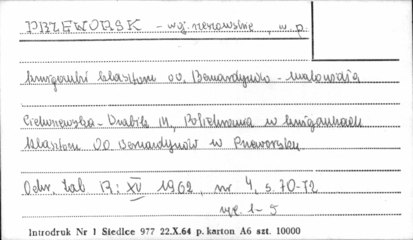 PRZEWORSK - woj. rzeszowskie, w. p.
krużganki klasztoru oo. Bernardynów - malowidła
Ciechanowska-Dubik M, Polichromia w krużgankach
klasztoru OO Bernardynów w Przeworsku
Ochr. Zab R: XV 1962, nr 4, s. 70-72
ryc. 1-5
Introdruk Nr 1 Siedlce 977 22.X.64 p. karton A6 szt. 10000